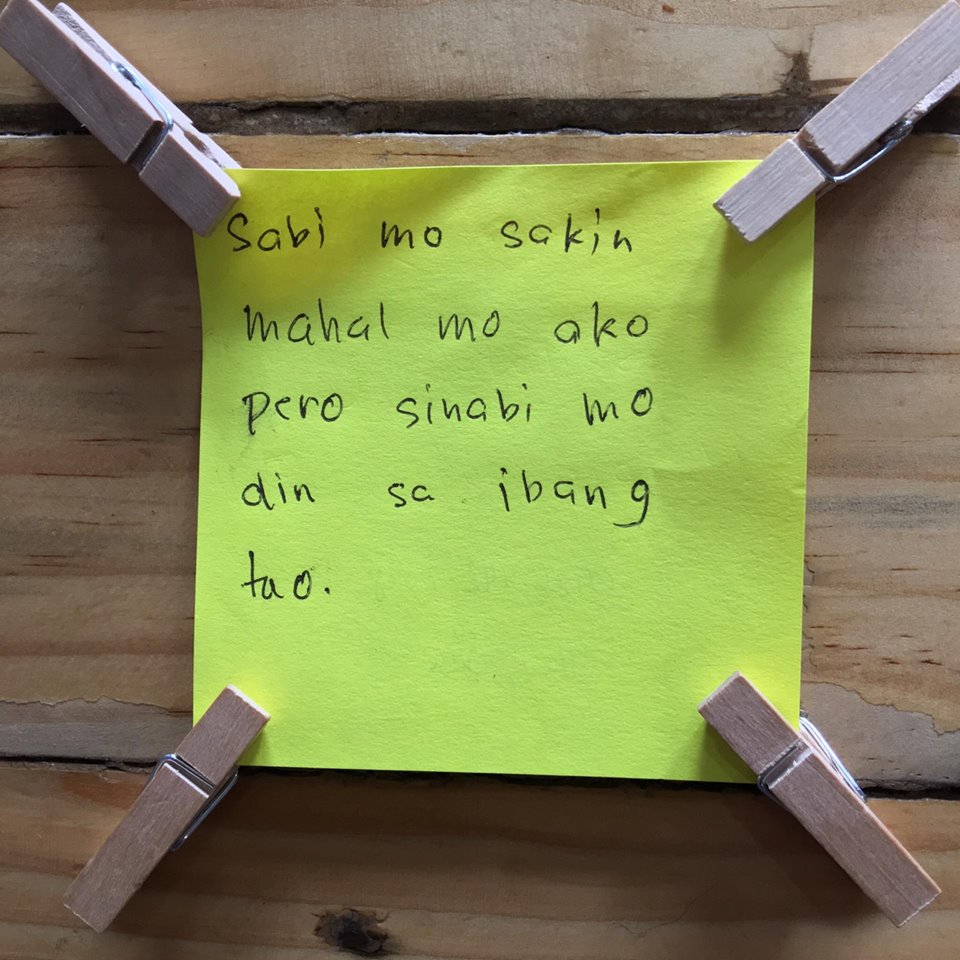 Sabi mo sakin
mahal mo ako
pero sinabi mo
din sa ibang
tao.